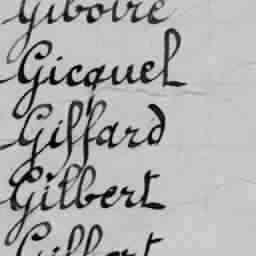 Giboire
Gicquel
Giffard
Gilbert